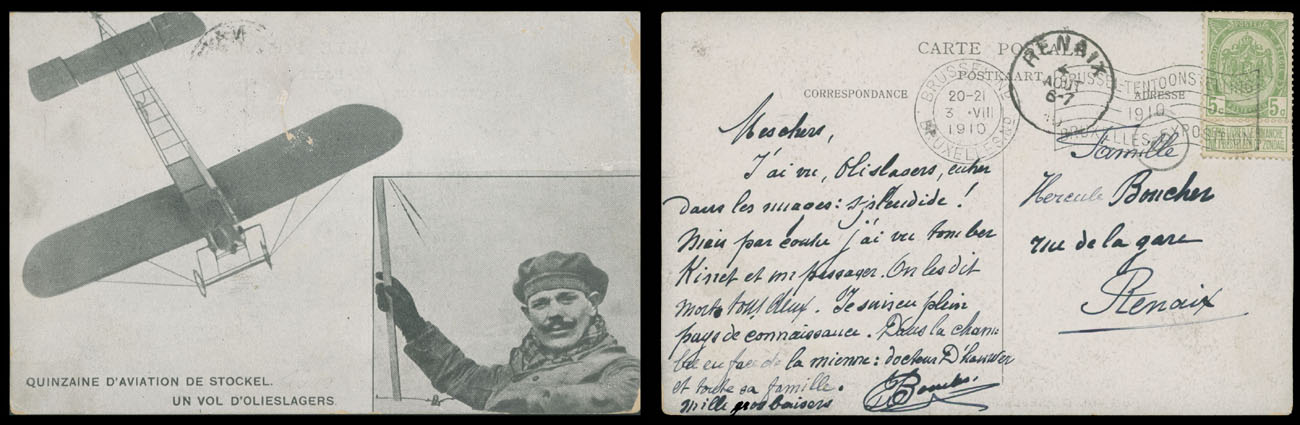 QUINZAINE D'AVIATION DE STOCKEL.
UN VOL D'OLIESLAGERS
CARTE POSTALE
POSTKAART
CORRESPONDANCE
ADRESSE
BRUSSEL
20-21
3 ·VIII
1910
BRUXELLES
RENAIX
AOUT
6-7
BRUSSEL-TENTOONSTELLING
1910
BRUXELLES-EXPOSITION
POSTES
5c 5c
Mes chers,
J'ai vu, Olislagers, entrer
dans les nuages: splendide!
Mais par contre j'ai vu tomber
Kinet et un passager. On les dit
morts tous deux. Je suis en plein
pays de connaissance. Dans la cham=
bre en face de la mienne: docteur D'hauwer
et toute sa famille.
Mille gros baisers
Famille
Hercule Boucher
rue de la gare
Renaix